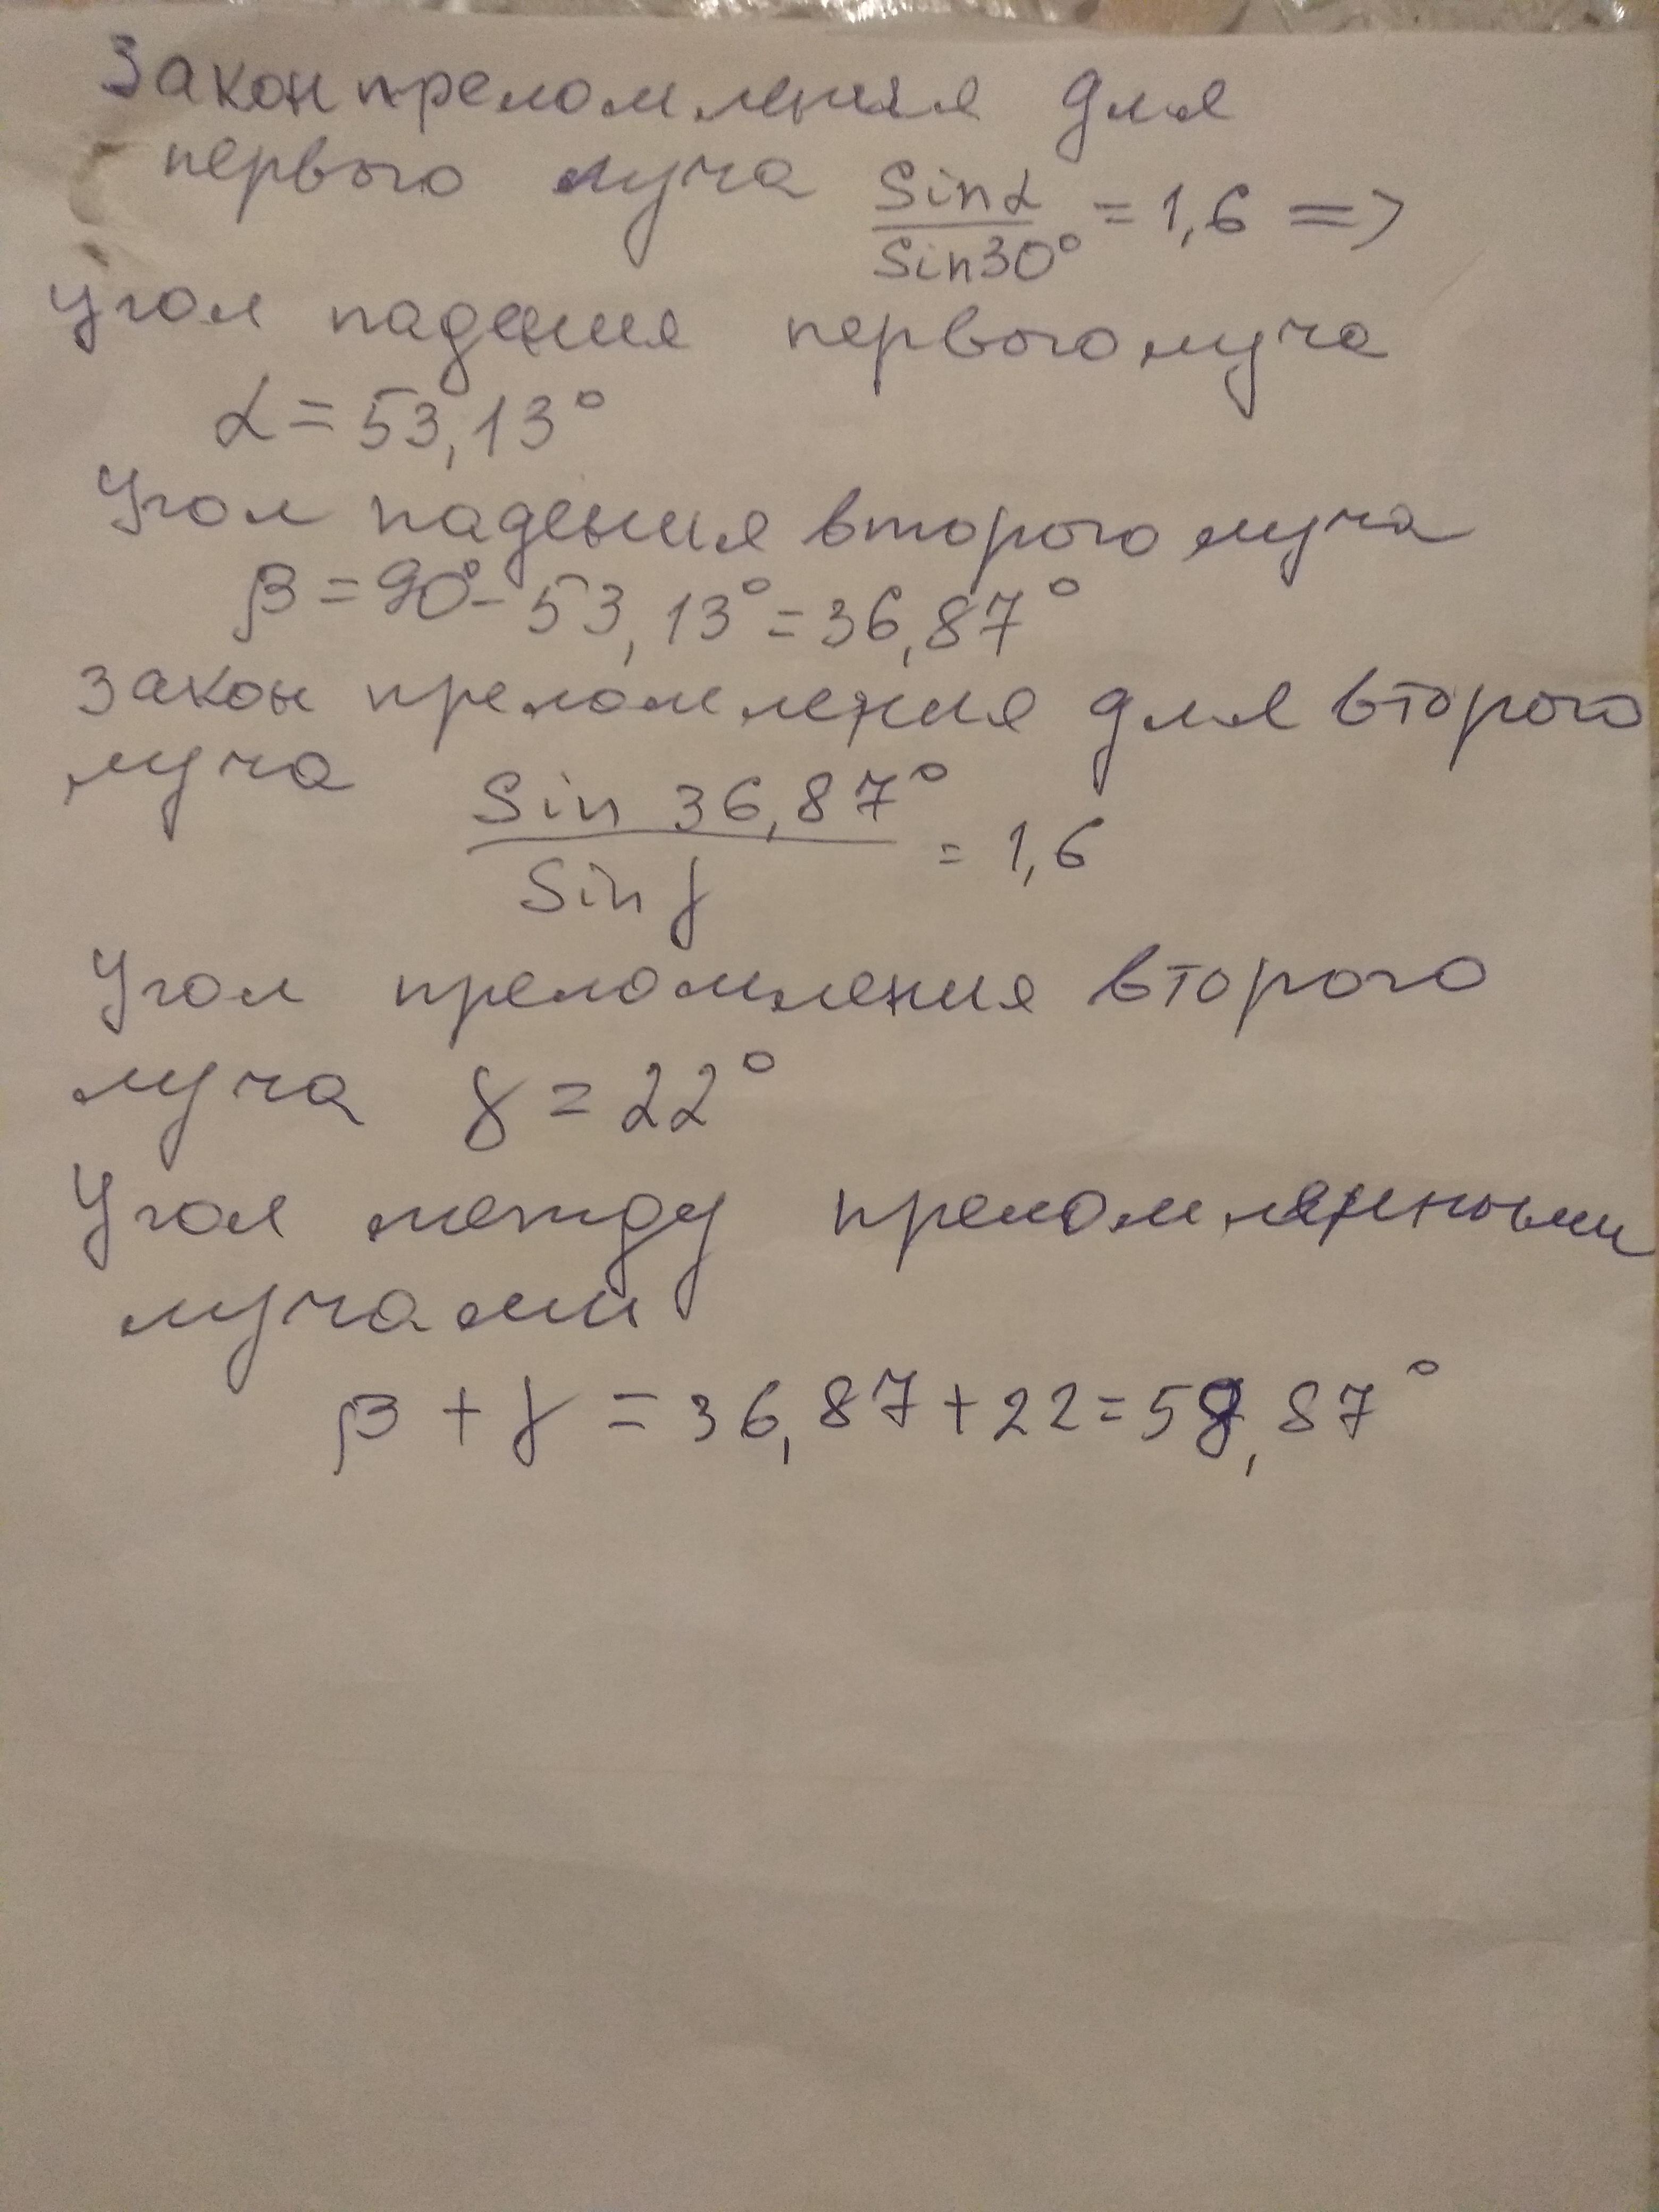 Закон преломления для
первого луча sinα/sin30° = 1,6 =>
Угол падения первого луча
α = 53,13°
Угол падения второго луча
β = 90° - 53,13° = 36,87°
Закон преломления для второго
луча
sin 36,87°/sin γ = 1,6
Угол преломления второго
луча γ = 22°
Угол между преломленными
лучами
β + γ = 36,87 + 22 = 58,87°